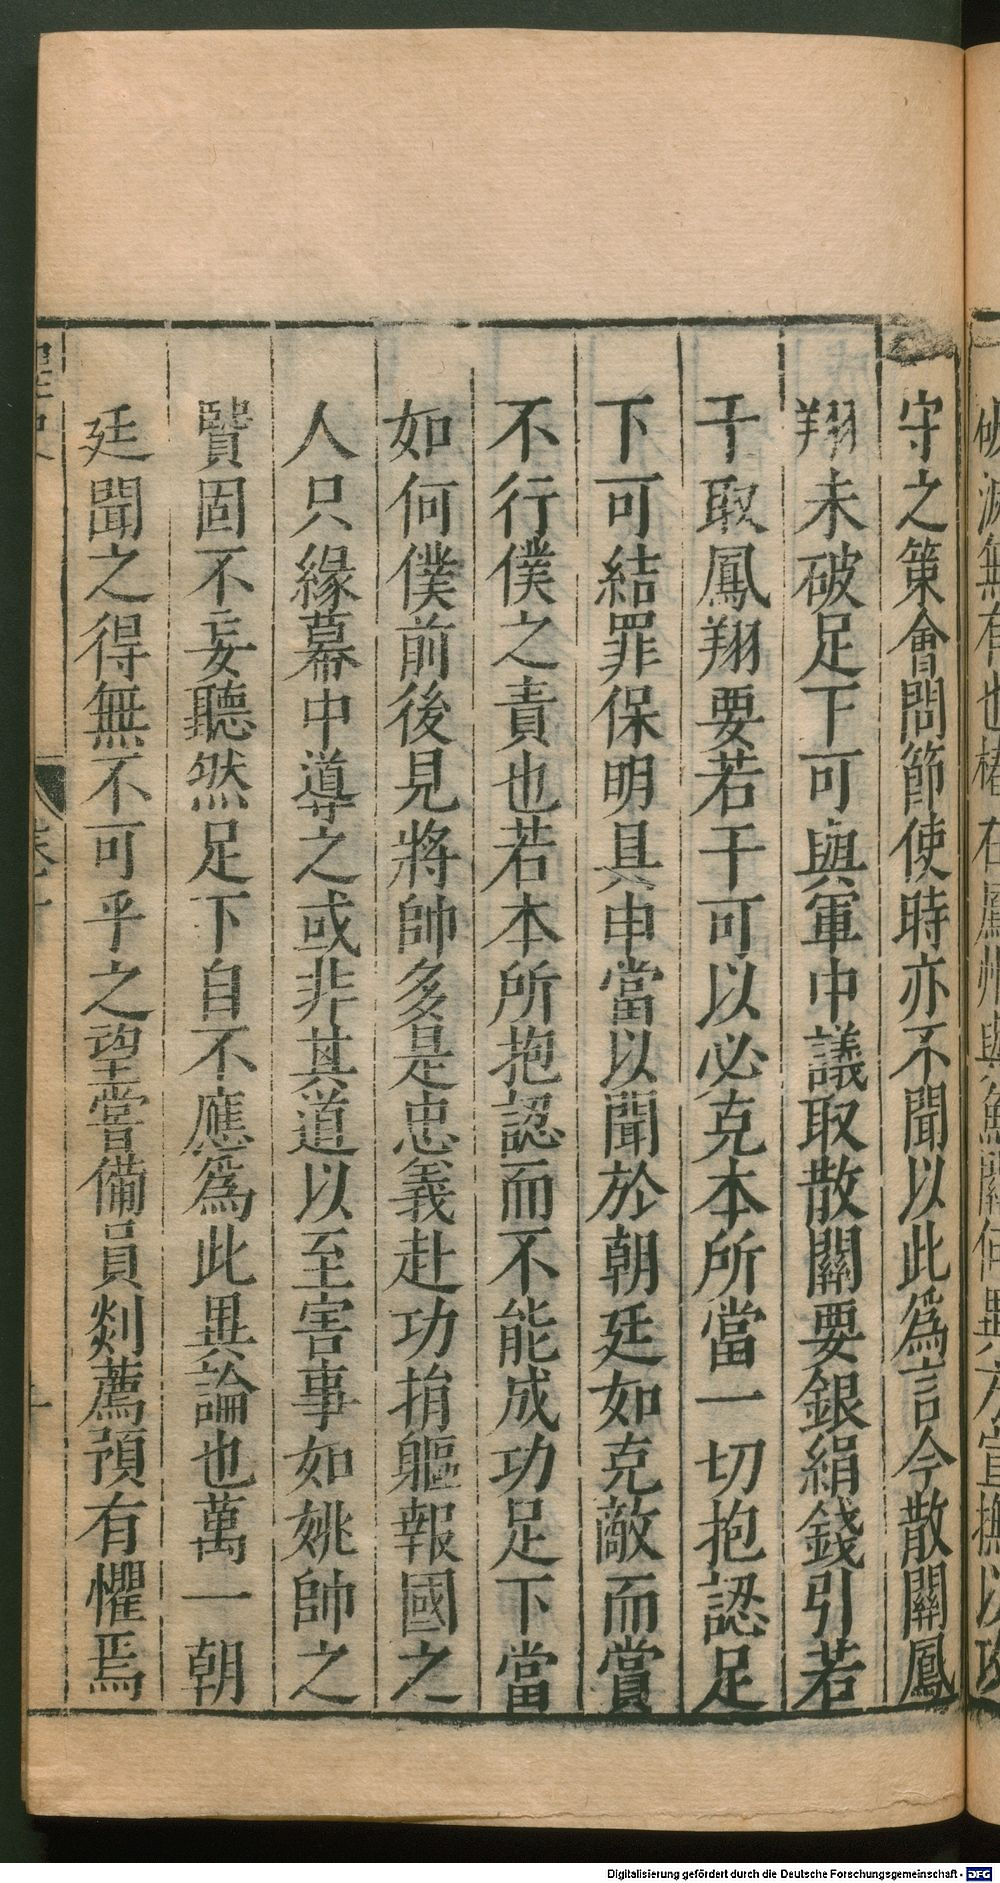 守之策會問節使時亦不聞以此爲言今散關鳳
翔未破足下可與軍中議取散關要銀絹錢引若
干取鳳翔要若干可以必克本所當一切抱認足
下可結罪保明具申當以聞於朝廷如克敵而賞
不行僕之責也若本所抱認而不能成功足下當
如何僕前後見將帥多是忠義赴功捐軀報國之
人只緣幕中導之或非其道以至害事如姚帥之
賢固不妄聽然足下自不應爲此異論也萬一朝
廷聞之得無不可乎之望嘗備員剡薦預有懼焉
Digitalisierung gefördert durch die Deutsche Forschungsgemeinschaft - DFG